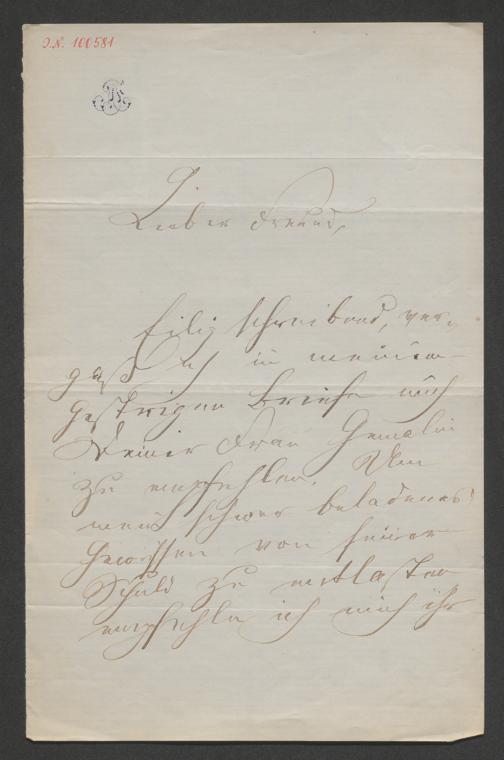 J.N. 100581
Lieber Freund,
Eilig schreibend, ver-
gaß ich in meinem
gestrigen Briefe mich
Deiner Frau Gemalin
zu empfehlen. Um
mein schwer beladenes
Gewissen von seiner
Schuld zu entlasten
empfehle ich mich ihr